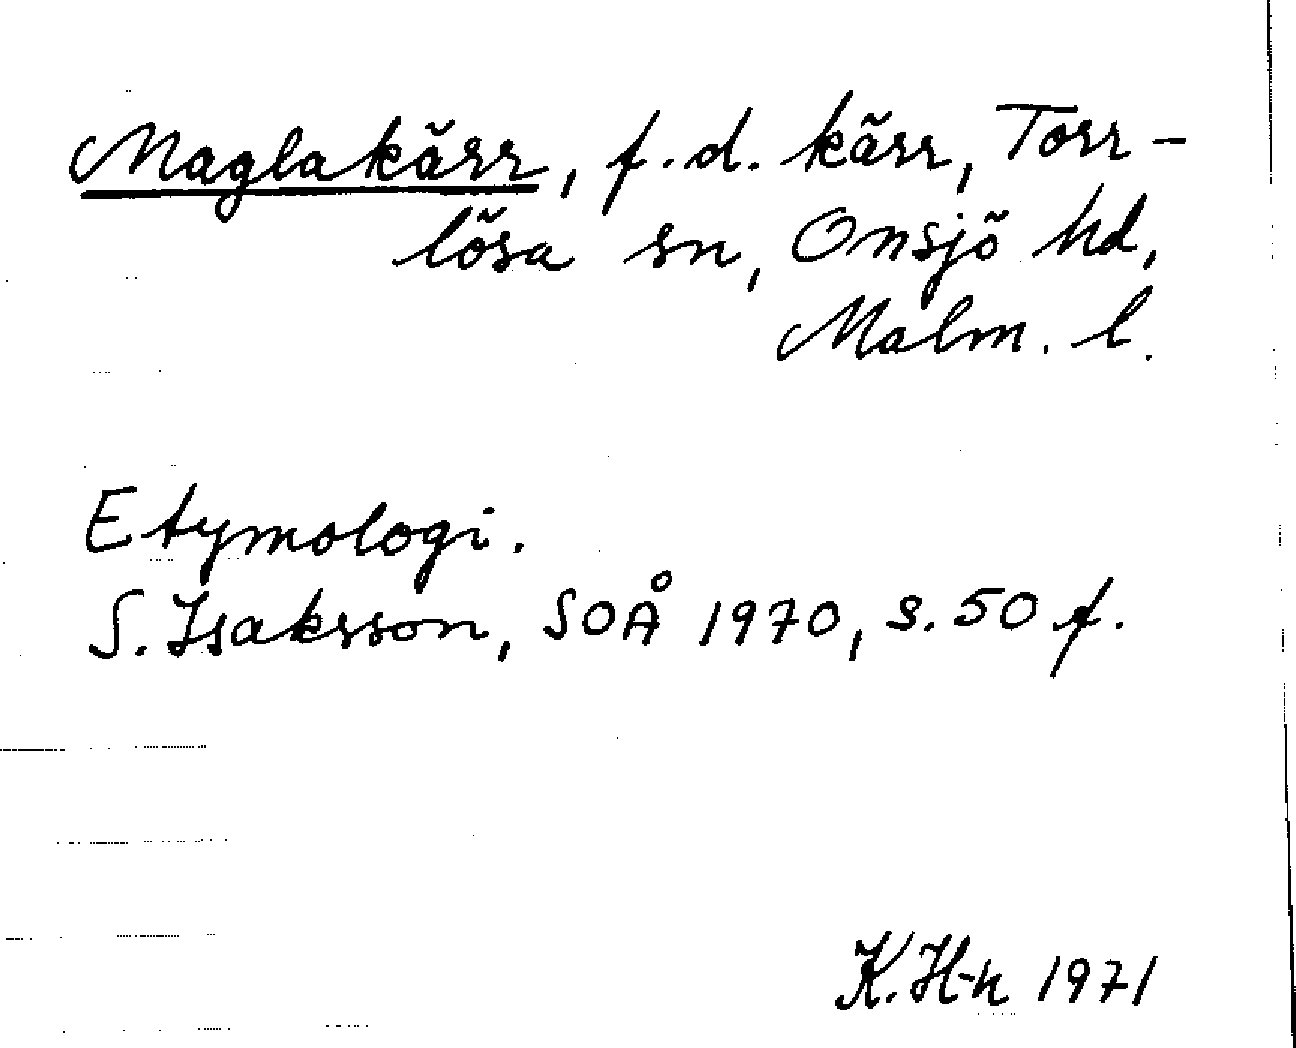 Maglakärr, f.d. kärr, Torr-
lösa sn, Onsjö hd,
Malm. l.
Etymologi.
S. Isaksson, SOÅ 1970, s. 50 f.
K. H-n 1971